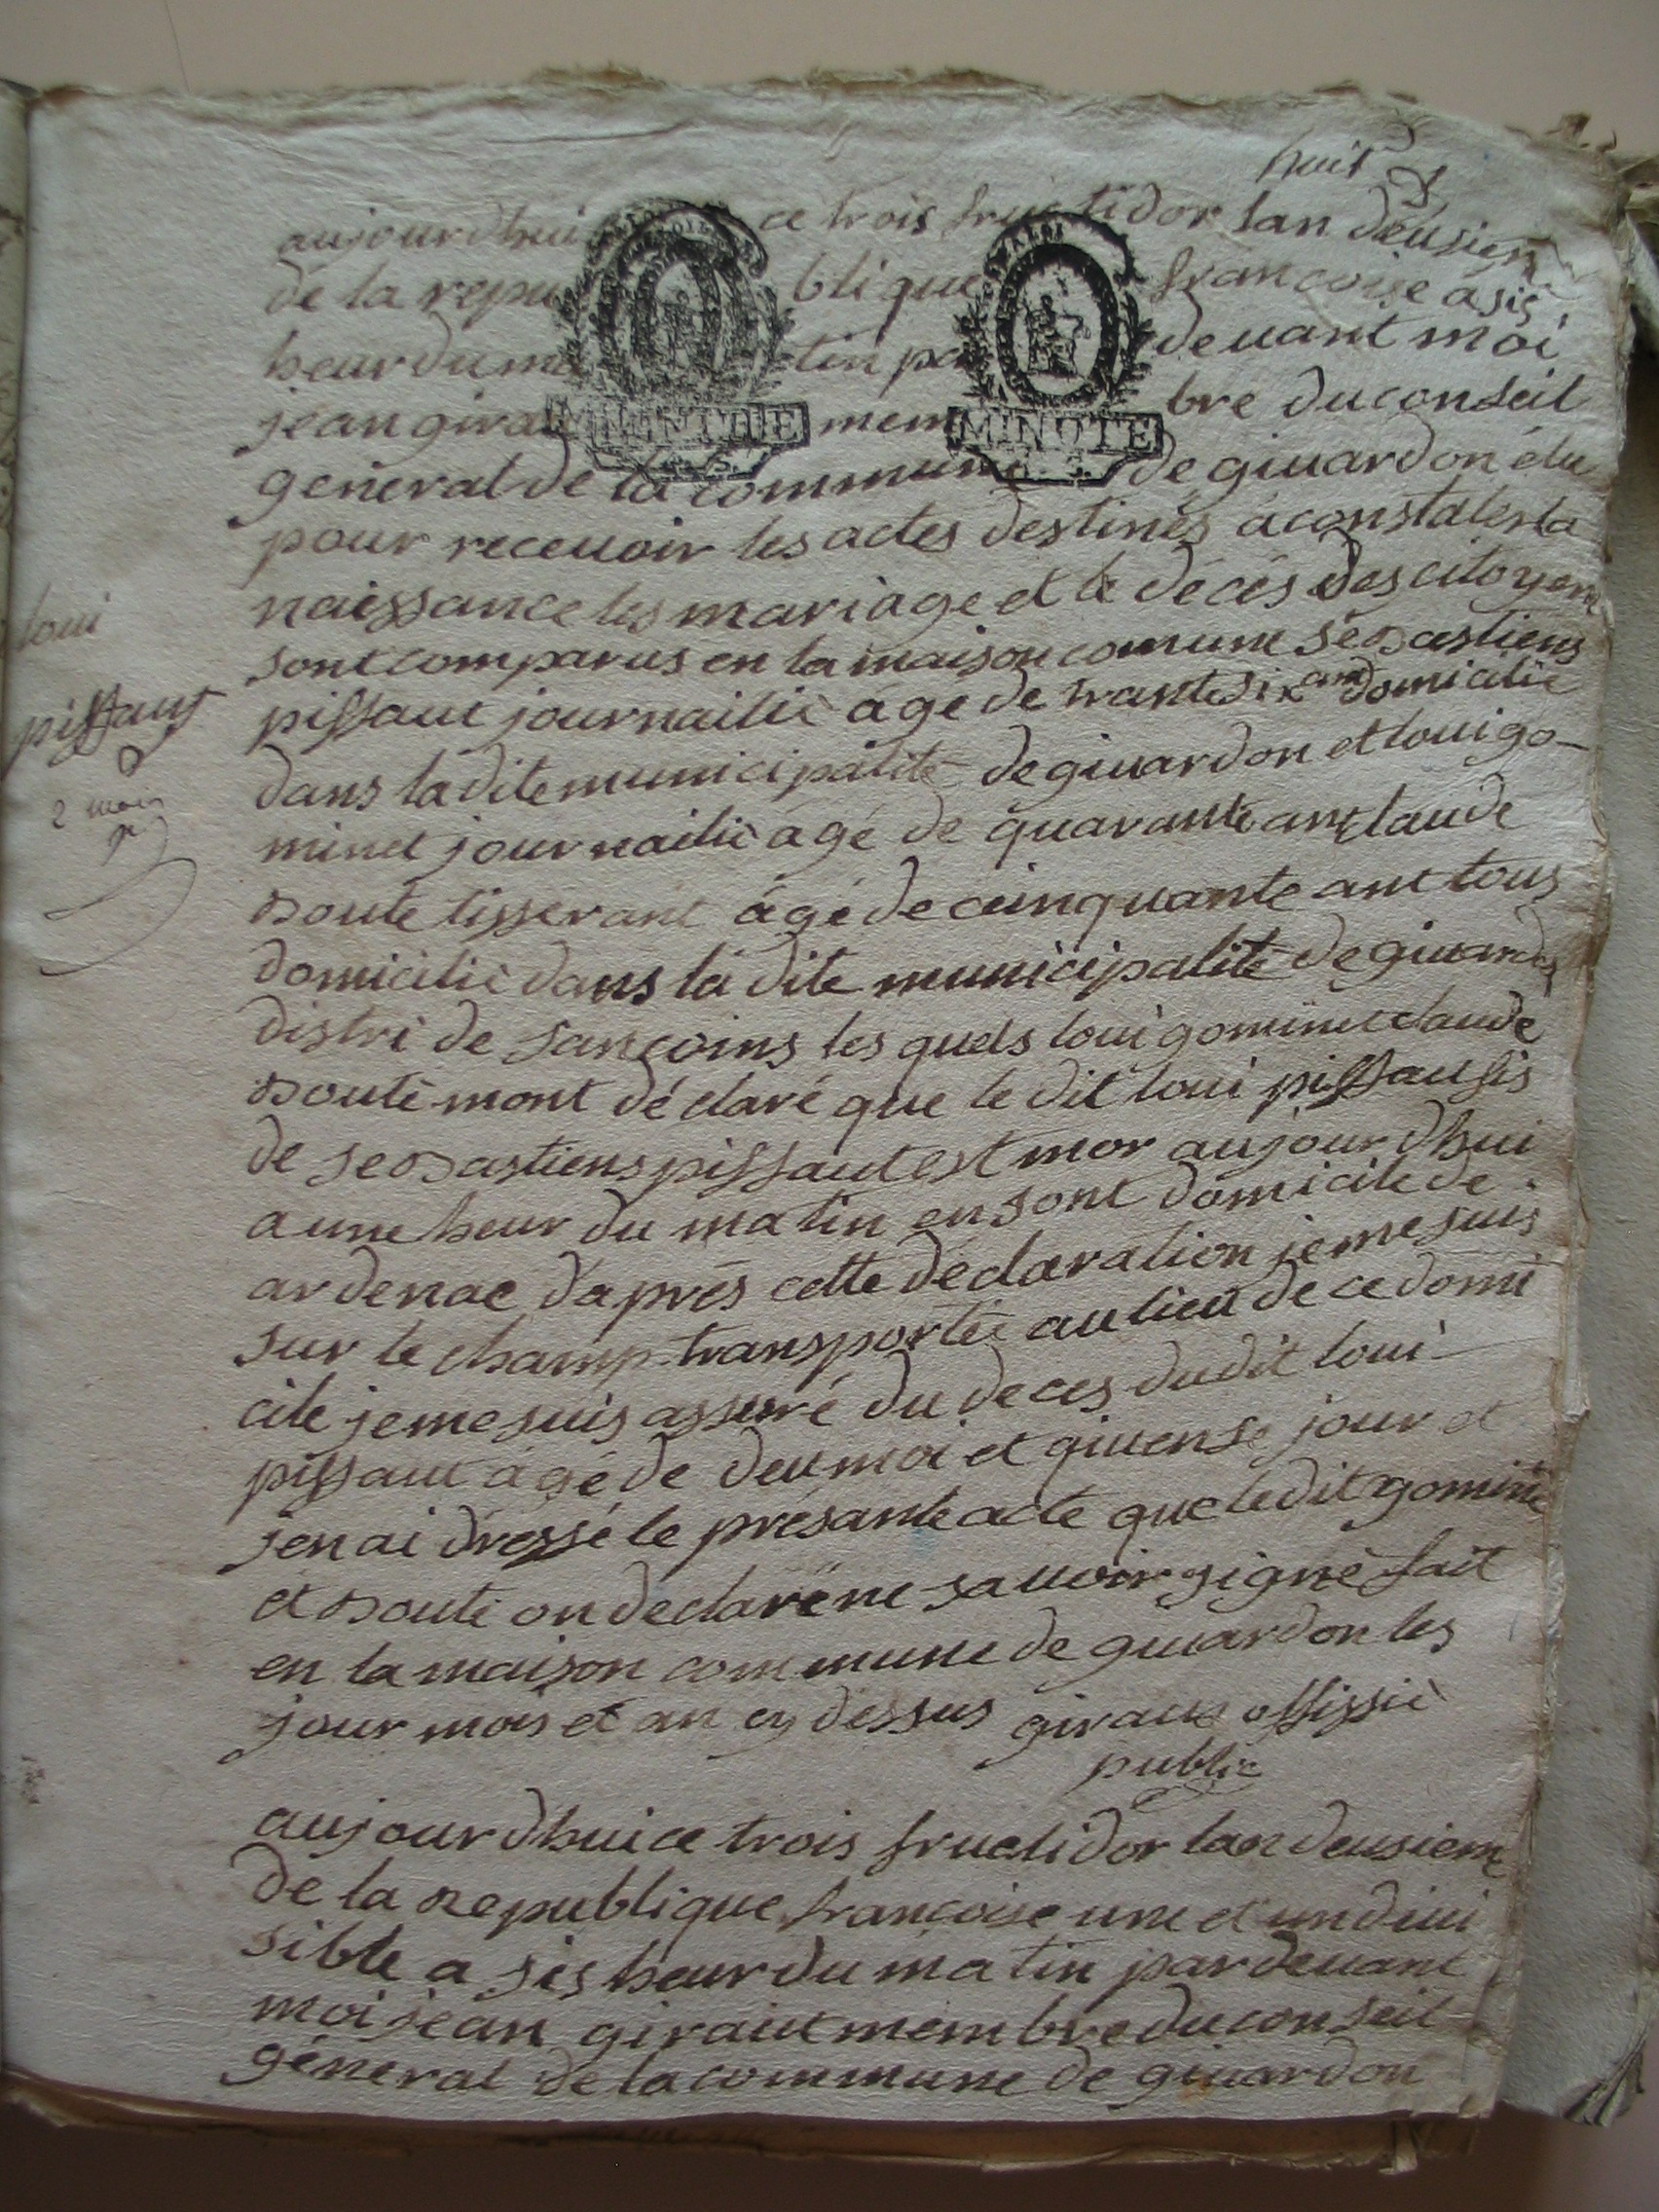 huit
aujourdhui ce trois fructidor lan deusiem
de la republique francoise a sis
heur du matin par devant moi
jean giraut membre du conseil
general de la commune de givardon élu
pour recevoir les actes destinés a constater la
naissance les mariage et le décés des citoyens
sont comparus en la maison comune sebastiens
pissaut journailié agé de trante six ans domicilié
dans la dite municipalité de givardon et loui go-
minet journailié agé de quarante ans claude
boute tisserant agé de cinquante ant tous
domicilié dans la dite municipalité de givardon
distri de sancoins les quels loui gominet claude
bouté mont déclaré que le dit loui pissau fis
de sebastiens pissaut est mor aujour dhui
a une heur du matin en sont domicile de
ardenac d'aprés cette declaration je me suis
sur le champ transportée au lieu de ce domi
cile je me suis assuré du deces dudit loui
pissaut agé de deu moi et quiense jour et
jen ai dressé le presante acte que ledit gominet
et bouté on declaré ne savoir signé fait
en la maison commune de givardon les
jour mois et an cy dessus giraut offissié
public
loui
pissaut
2 mois
aujourdhui ce trois fructidor lan deusiem
de la republique francoise une et undivi
sible a sis heur du matin par devant
moi jean giraut membre du conseil
géneral de la commune de givardon
MINUTE
MINUTE